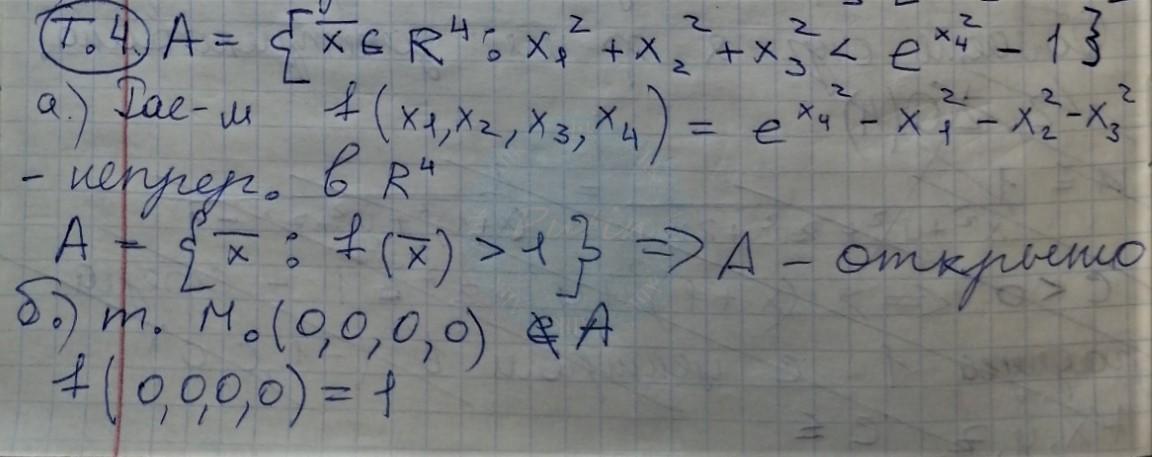 Т.4. A = {x̅ ∈ R⁴ : x₁² + x₂² + x₃² < e^{x₄²} - 1}
а.) Рас-м f(x₁, x₂, x₃, x₄) = e^{x₄²} - x₁² - x₂² - x₃²
- непрер. в R⁴
A = {x̅ : f(x̅) > 1} => A - открыто
б.) т. M₀(0,0,0,0) ∉ A
f(0,0,0,0) = 1